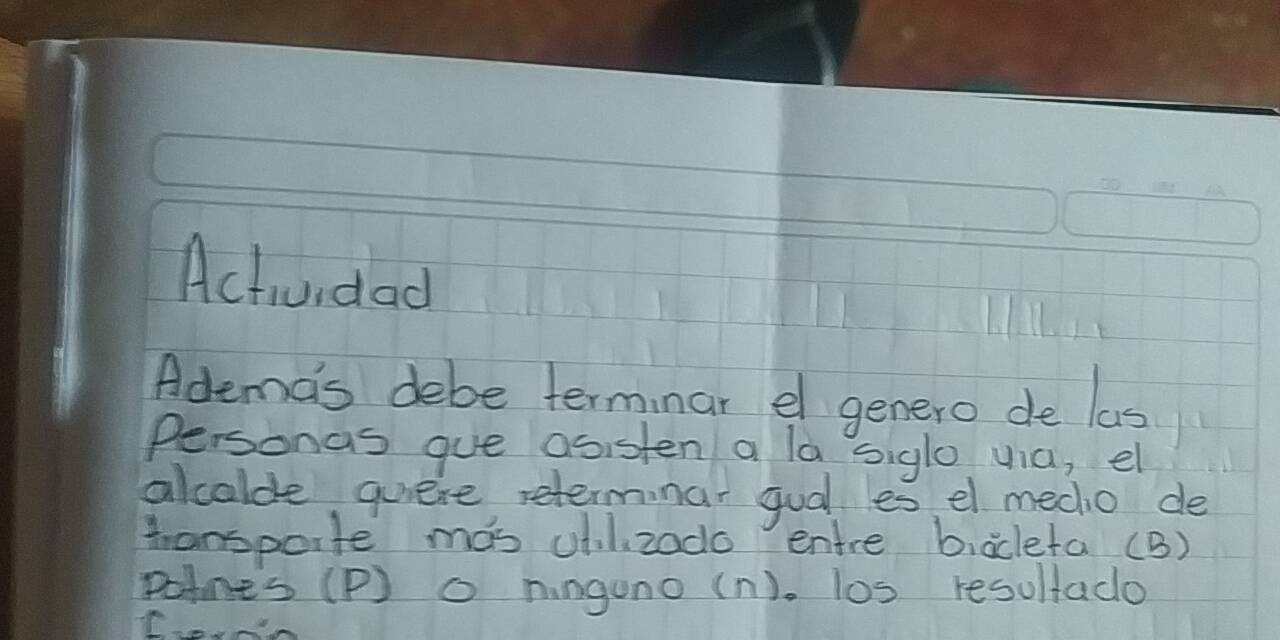 Actividad
Además debe terminar el genero de las
Personas que asisten a la siglo via, el
alcalde quiere reterminar qual es el medio de
transporte más utilizado entre bicicleta (B)
patnes (P) o ninguno (n). los resultado